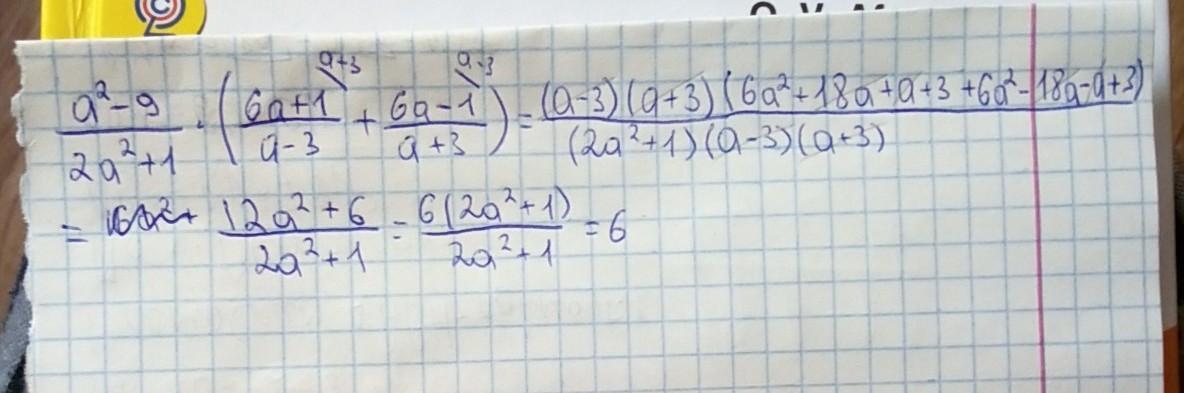 a+3 a-3
(a²-9)/(2a²+1) · ((6a+1)/(a-3) + (6a-1)/(a+3)) = ((a-3)(a+3)(6a²+18a+a+3+6a²-18a-a+3))/((2a²+1)(a-3)(a+3))
= (12a²+6)/(2a²+1) = (6(2a²+1))/(2a²+1) = 6